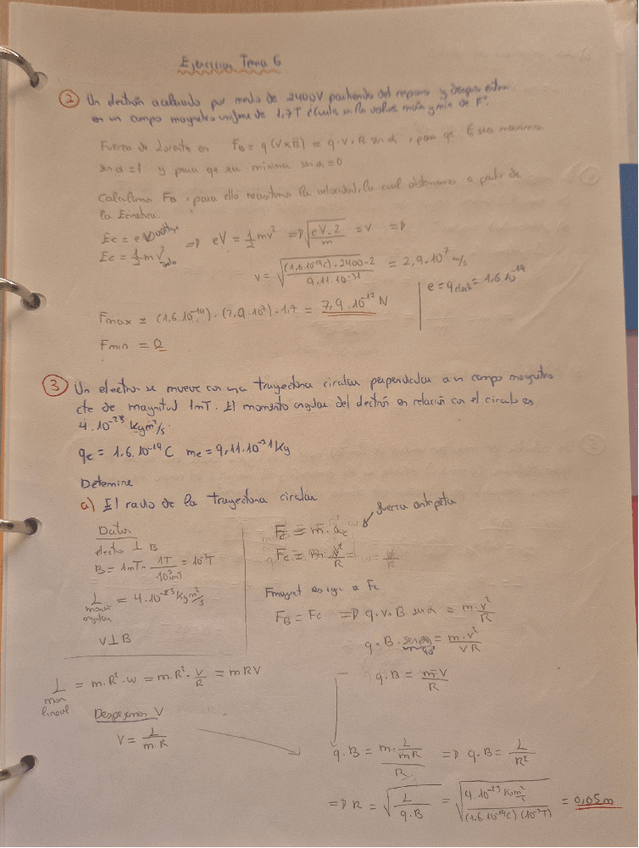 Ejercicios Tema 6
② Un electrón acelerado por medio de 2400V partiendo del reposo y después entra
en un campo magnético uniforme de 1,7T calcula el valor máx y min de F.
Fuerza de Lorentz es F_B = q(V×B) = q·V·B sen α, para que sea máxima
sen α = 1 y para que sea mínima sen α = 0
Calculamos F_B, para ello necesitamos la velocidad, la cual obtenemos a partir de
la E cinética.
Ec = e V
Ec = 1/2 m v² => eV = 1/2 mv² => √(eV·2/m) = v =>
v = √((1,6·10⁻¹⁹C)·2400·2 / 9,11·10⁻³¹) = 2,9·10⁷ m/s
e = q = 1,6·10⁻¹⁹
Fmax = (1,6·10⁻¹⁹)·(2,9·10⁷)·1,7 = 7,9·10⁻¹² N
Fmin = 0
③ Un electrón se mueve con una trayectoria circular perpendicular a un campo magnético
cte de magnitud 1mT. El momento angular del electrón en relación con el círculo es
4·10⁻²⁵ Kgm²/s
qe = 1,6·10⁻¹⁹ C me = 9,11·10⁻³¹ Kg
Determine
a) El radio de la trayectoria circular
Datos
electrón ⊥ B
B = 1mT · 1T/10³mT = 10⁻³T
L = 4·10⁻²⁵ Kgm²/s
momento angular
V ⊥ B
Fc = m·ac
fuerza centrípeta
Fc = m·v²/R
Fmagnet es igual a Fc
F_B = Fc => q·v·B sen α = m·v²/R
q·B·sen 90° = m·v²/VR
q·B = m·V/R
L = m·R²·w = m·R²·V/R = mRV
mom
lineal
Despejamos V
V = L/m·R
q·B = m·(L/mR)/R => q·B = L/R²
=> R = √(L/q·B) = √(4·10⁻²⁵ Kgm²/s / (1,6·10⁻¹⁹C)(10⁻³T)) = 0,05m